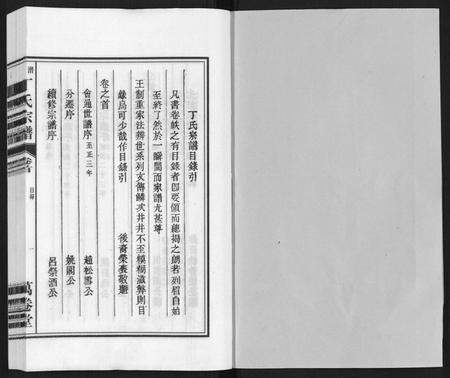 丁氏宗譜目錄引
凡書卷帙之有目錄者卽要領而總揭之朗若列眉自始
至終了然於一瞬間而家譜尤甚尊
王制重家法辨世系列文傳鱗次井井不至模糊濫弊則目
錄烏可少哉作目錄引
後裔榮表敬譔
卷之首
會通世譜序 至正二年
趙松雪公
分遷序
姚閣公
續修宗譜序
呂祭酒公
譜
丁氏宗譜
卷首
目錄
一
萬卷堂